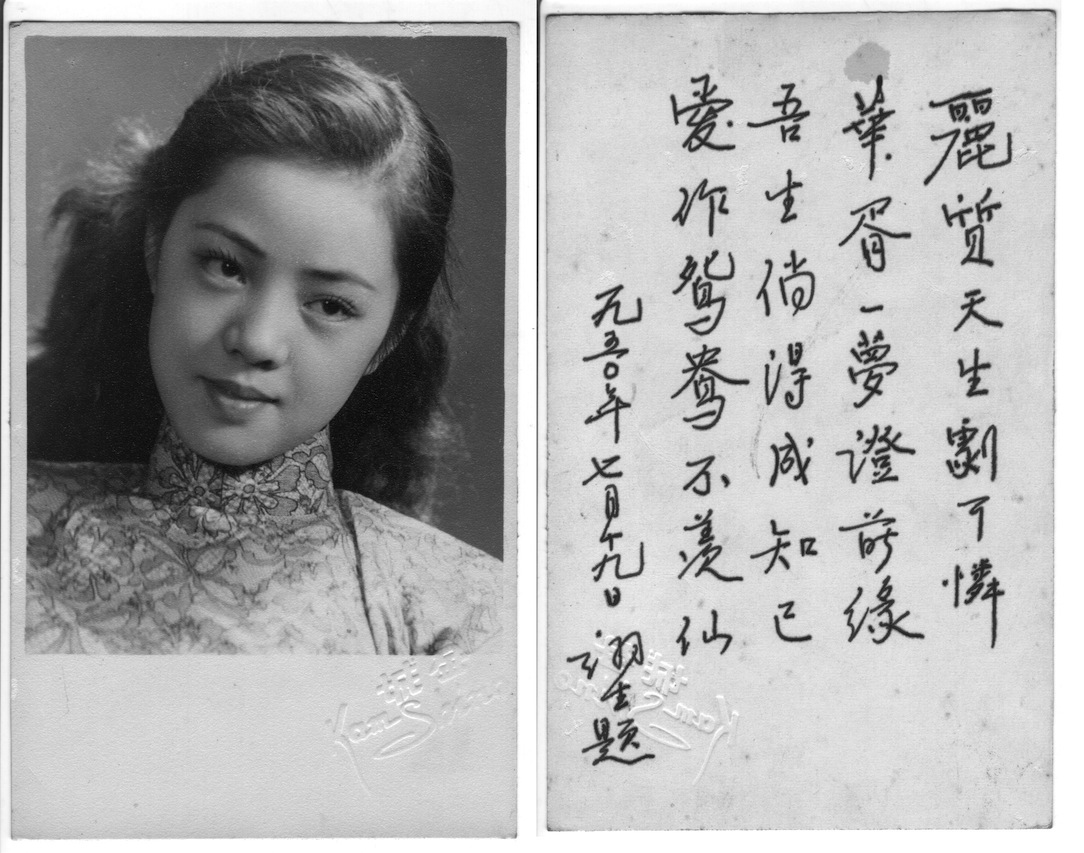 麗質天生劇可憐
華胥一夢證前緣
吾生倘得成知己
愛作鴛鴦不羨仙
一九五〇年七月十九日
翊生題
Kam Sing